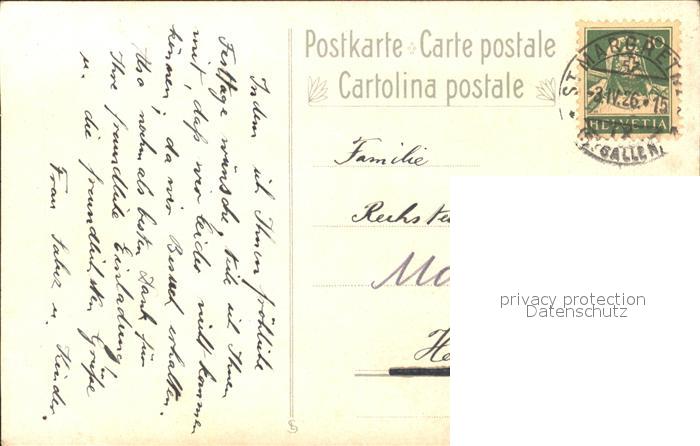 Postkarte Carte postale
Cartolina postale
10
ST. MARGRETHEN
3.IV.26. 15
(ST. GALLEN)
HELVETIA
Familie
Rechste
Mo
He
privacy protection
Datenschutz
Indem ich Ihnen fröhliche
Festtage wünsche, teile ich Ihnen
mit, daß wir leider nicht kommen
können, da wir Besuch erhalten.
Also nochmals besten Dank für
Ihre freundliche Einladung
u. die freundlichsten Grüße
Frau u. Kinder.